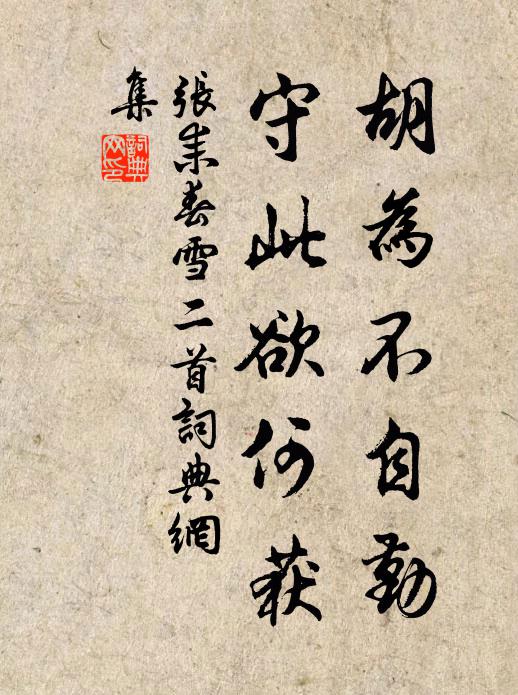 胡為不自勤
守此欲何获
張耒春雪二首詞典網
集
詞典
网印